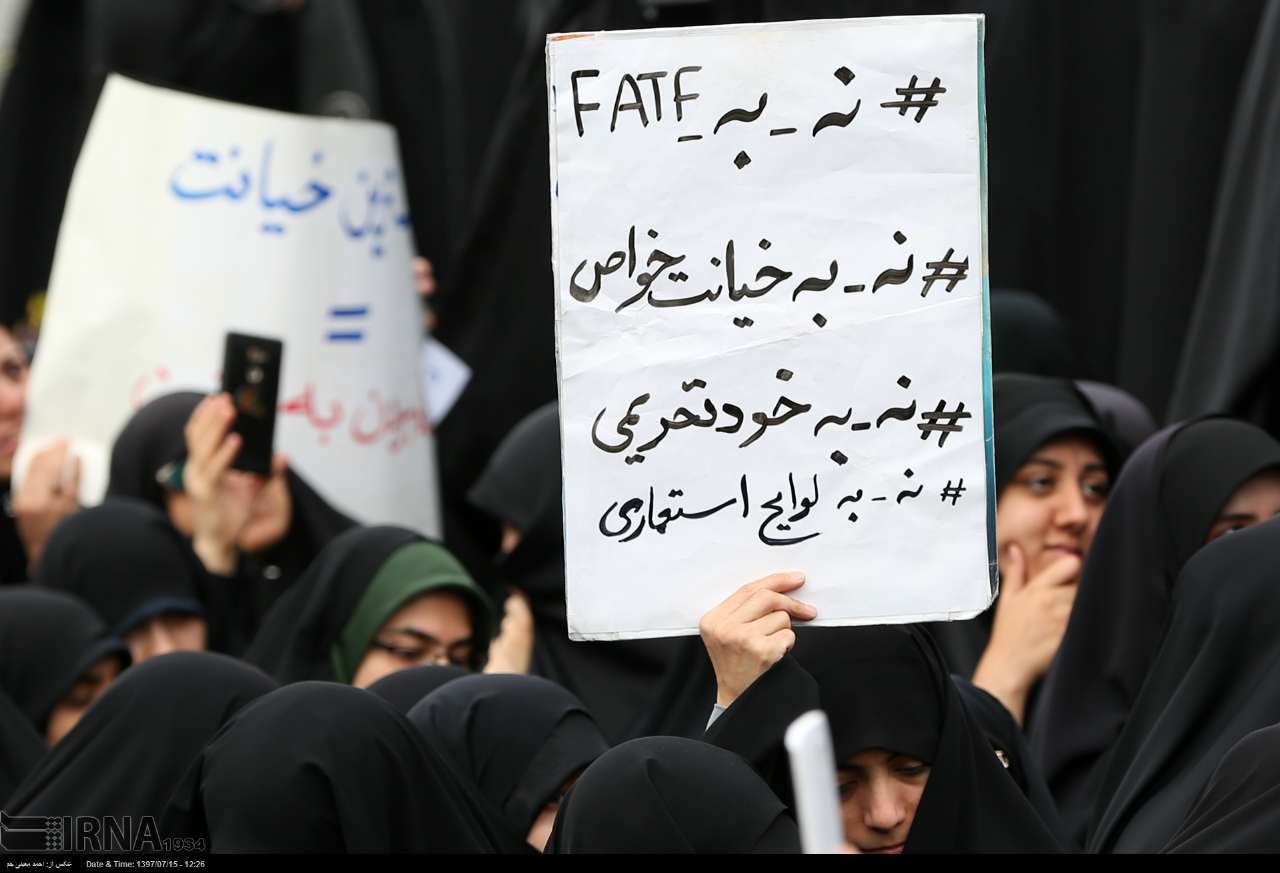 # نه_به_FATF
# نه_به خیانت_خواص
# نه_به خودتحریمی
# نه_به لوایح استعماری
خیانت
=
IRNA 1934
عکس از: احمد معینی جم
Date & Time: 1397/07/15 - 12:26